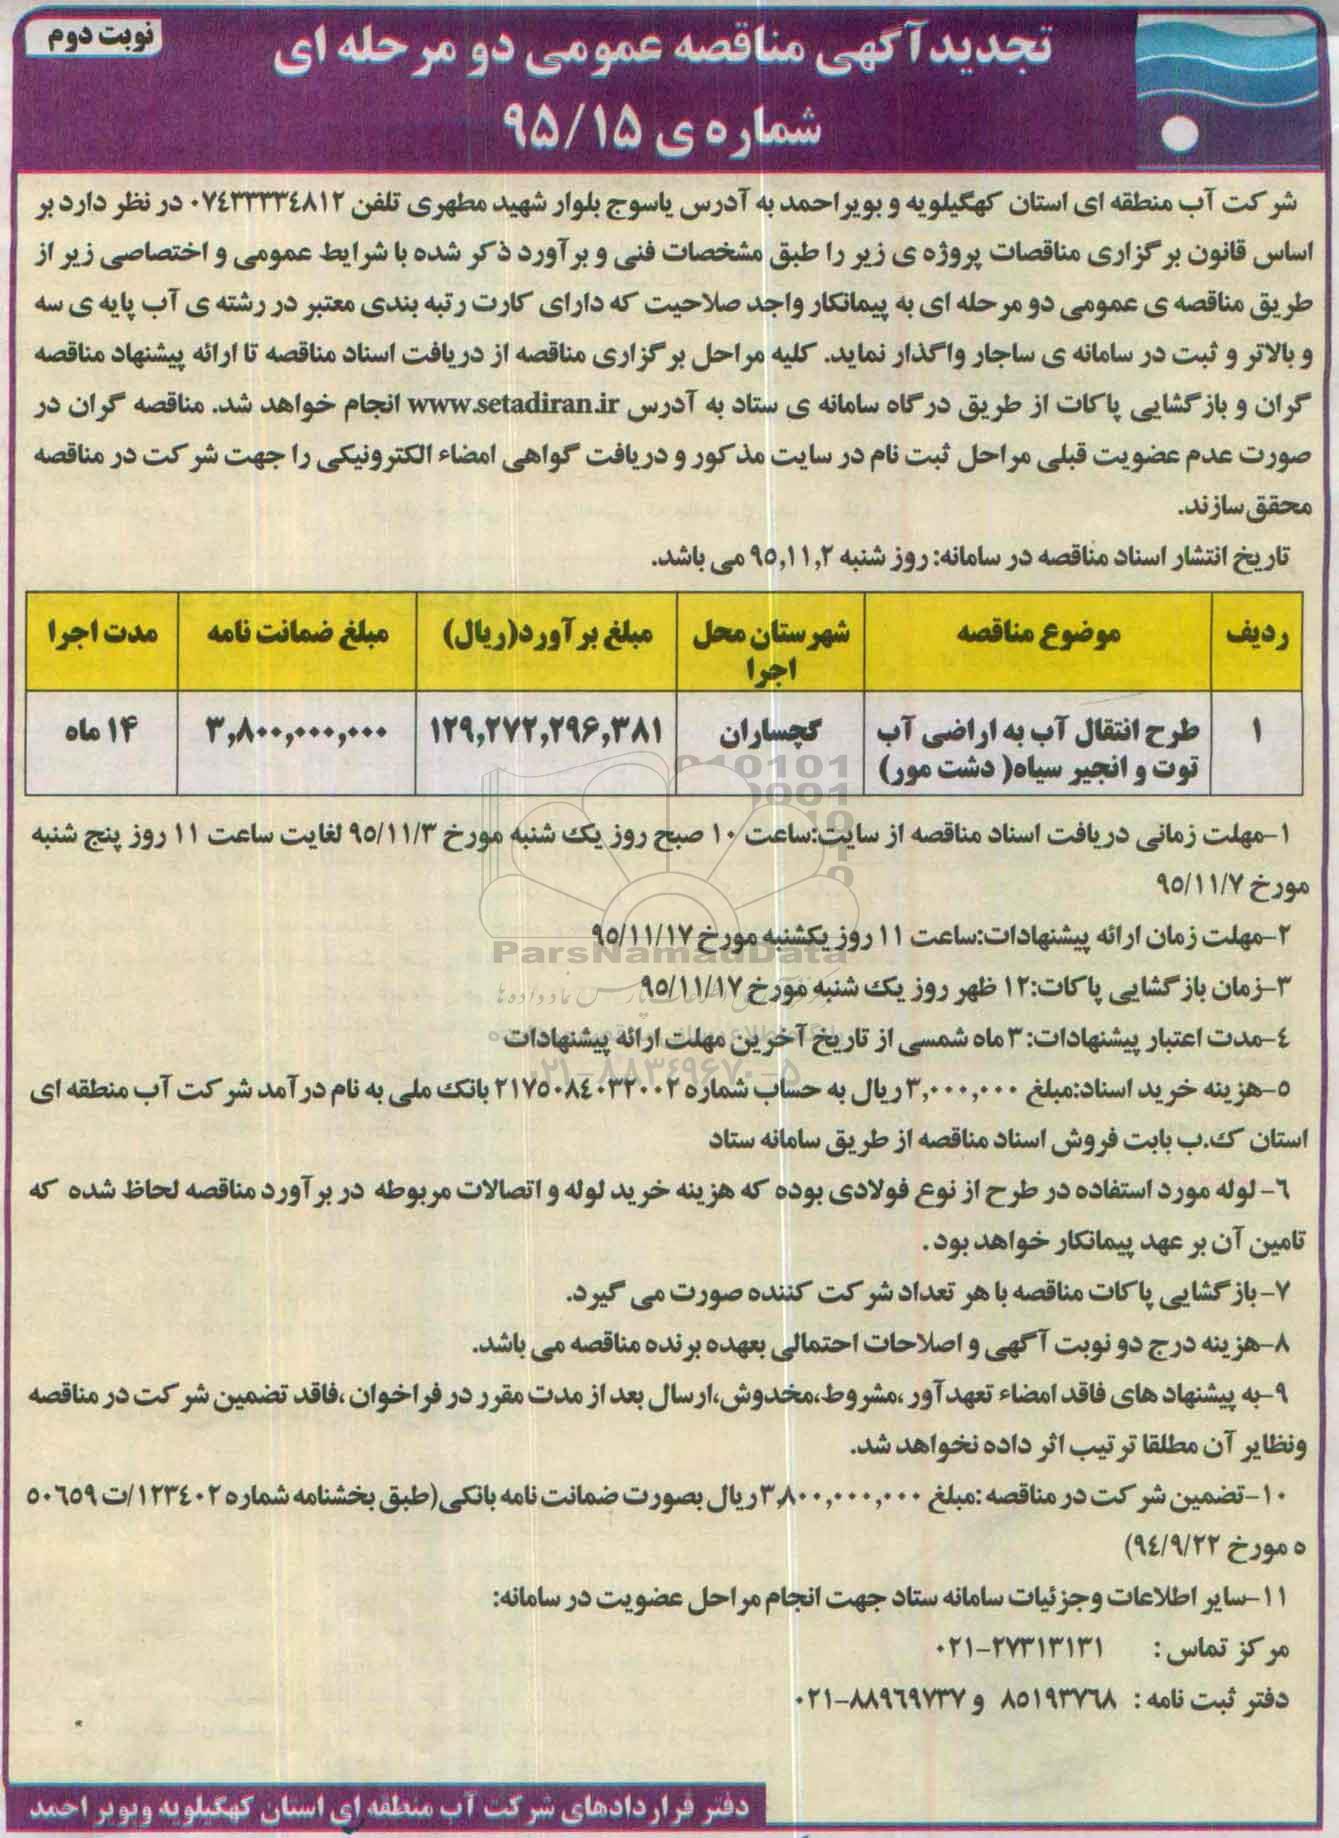 نوبت دوم
تجدید آگهی مناقصه عمومی دو مرحله ای
شماره ی ۹۵/۱۵
شرکت آب منطقه ای استان کهگیلویه و بویراحمد به آدرس یاسوج بلوار شهید مطهری تلفن ۰۷٤۳۳۳۳٤۸۱۲ در نظر دارد بر
اساس قانون برگزاری مناقصات پروژه ی زیر را طبق مشخصات فنی و برآورد ذکر شده با شرایط عمومی و اختصاصی زیر از
طریق مناقصه ی عمومی دو مرحله ای به پیمانکار واجد صلاحیت که دارای کارت رتبه بندی معتبر در رشته ی آب پایه ی سه
و بالاتر و ثبت در سامانه ی ساجار واگذار نماید. کلیه مراحل برگزاری مناقصه از دریافت اسناد مناقصه تا ارائه پیشنهاد مناقصه
گران و بازگشایی پاکات از طریق درگاه سامانه ی ستاد به آدرس www.setadiran.ir انجام خواهد شد. مناقصه گران در
صورت عدم عضویت قبلی مراحل ثبت نام در سایت مذکور و دریافت گواهی امضاء الکترونیکی را جهت شرکت در مناقصه
محقق سازند.
تاریخ انتشار اسناد مناقصه در سامانه: روز شنبه ۹۵,۱۱,۲ می باشد.
ردیف موضوع مناقصه شهرستان محل مبلغ برآورد(ریال) مبلغ ضمانت نامه مدت اجرا
اجرا
۱ طرح انتقال آب به اراضی آب گچساران ۱۲۹,۲۷۲,۲۹۶,۳۸۱ ۳,۸۰۰,۰۰۰,۰۰۰ ۱۴ ماه
توت و انجیر سیاه( دشت مور)
۱-مهلت زمانی دریافت اسناد مناقصه از سایت:ساعت ۱۰ صبح روز یک شنبه مورخ ۹۵/۱۱/۳ لغایت ساعت ۱۱ روز پنج شنبه
مورخ ۹۵/۱۱/۷
۲-مهلت زمان ارائه پیشنهادات:ساعت ۱۱ روز یکشنبه مورخ ۹۵/۱۱/۱۷
ParsNamadData
۳-زمان بازگشایی پاکات:۱۲ ظهر روز یک شنبه مورخ ۹۵/۱۱/۱۷
٤-مدت اعتبار پیشنهادات: ۳ ماه شمسی از تاریخ آخرین مهلت ارائه پیشنهادات
۰۲۱-۸۸۳٤۹٦۷۰-۵
۵-هزینه خرید اسناد:مبلغ ۳,۰۰۰,۰۰۰ ریال به حساب شماره ۲۱۷۵۰۸٤۰۳۲۰۰۲ بانک ملی به نام درآمد شرکت آب منطقه ای
استان ک.ب بابت فروش اسناد مناقصه از طریق سامانه ستاد
٦- لوله مورد استفاده در طرح از نوع فولادی بوده که هزینه خرید لوله و اتصالات مربوطه در برآورد مناقصه لحاظ شده که
تامین آن بر عهد پیمانکار خواهد بود .
۷- بازگشایی پاکات مناقصه با هر تعداد شرکت کننده صورت می گیرد.
۸-هزینه درج دو نوبت آگهی و اصلاحات احتمالی بعهده برنده مناقصه می باشد.
۹-به پیشنهاد های فاقد امضاء تعهدآور ،مشروط،مخدوش،ارسال بعد از مدت مقرر در فراخوان ،فاقد تضمین شرکت در مناقصه
ونظایر آن مطلقا ترتیب اثر داده نخواهد شد.
۱۰-تضمین شرکت در مناقصه :مبلغ ۳,۸۰۰,۰۰۰,۰۰۰ ریال بصورت ضمانت نامه بانکی(طبق بخشنامه شماره ۱۲۳٤۰۲/ت ۵۰٦۵۹
ه مورخ ۹٤/۹/۲۲)
۱۱-سایر اطلاعات وجزئیات سامانه ستاد جهت انجام مراحل عضویت در سامانه:
مرکز تماس : ۰۲۱-۲۷۳۱۳۱۳۱
دفتر ثبت نامه : ۸۵۱۹۳۷٦۸ و ۰۲۱-۸۸۹٦۹۷۳۷
دفتر قراردادهای شرکت آب منطقه ای استان کهگیلویه وبویر احمد